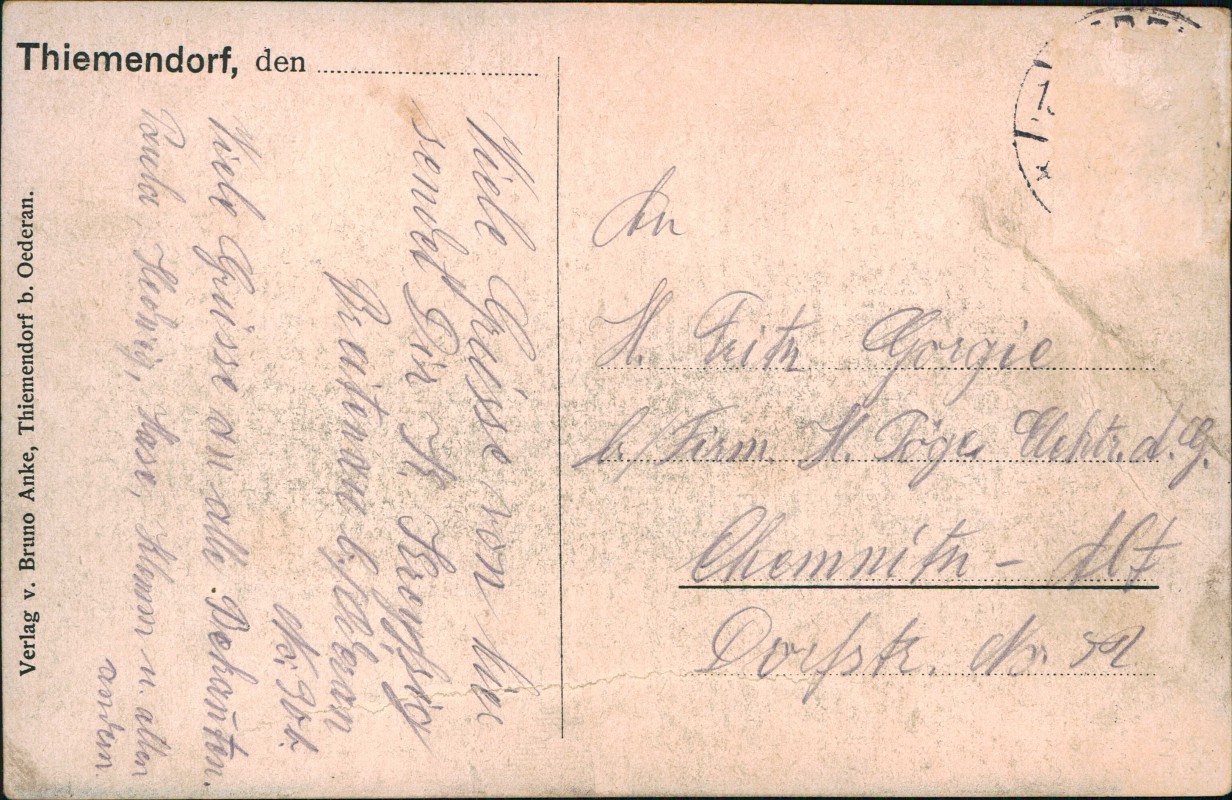 Thiemendorf, den
Verlag v. Bruno Anke, Thiemendorf b. Oederan.
Viele Grüsse von hier
sendet Dir
b/Oederan
Viele Grüsse an alle Bekannten.
Hedwig, u. allen
andern.
An
H. Fritz Gorgie
b/Firm. H. Pöge Elektr. A. G.
Chemnitz - Alt
Dorfstr. No.